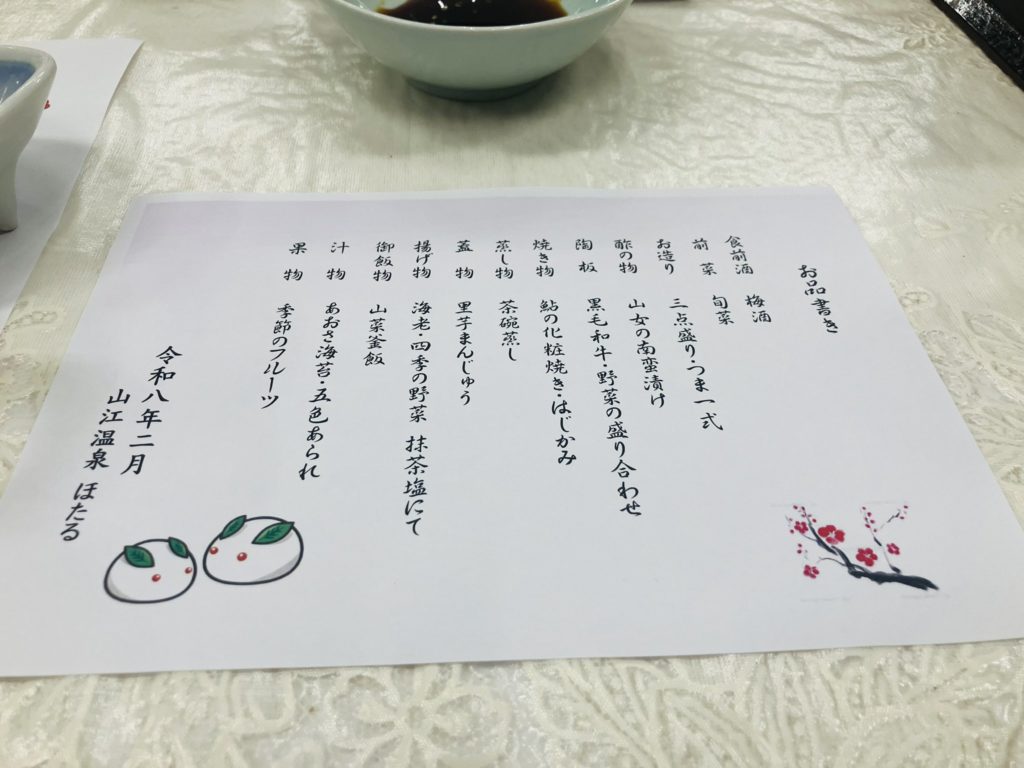 お品書き
食前酒 梅酒
前菜 旬菜
お造り 三点盛り・つま一式
酢の物 山女の南蛮漬け
陶板 黒毛和牛・野菜の盛り合わせ
焼き物 鮎の化粧焼き・はじかみ
蒸し物 茶碗蒸し
蓋物 里芋まんじゅう
揚げ物 海老・四季の野菜 抹茶塩にて
御飯物 山菜釜飯
汁物 あおさ海苔・五色あられ
果物 季節のフルーツ
令和八年二月
山江温泉 ほたる